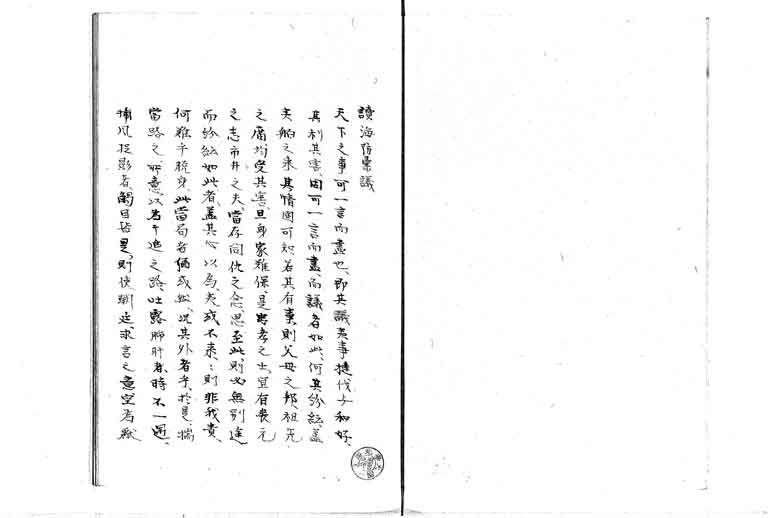 讀海防彙議
天下之事可一言而盡也、即其議夷事撻伐与和好、
其利其害、固可一言而盡、而議者如此、何其紛紜、蓋
夷舶之来、其情固可知、若其有事、則父母之邦、祖先
之廟均受其害、且身家難保、是忠孝之士、宜有喪元
之志、市井之夫、當存同仇之念、思至此、則必無別途
而紛紜如此者、蓋其心以為、夷或不来、、則非我責、
何難乎脱身、此當局者猶或然、況其外者乎、於是、揣
當路之所意、以為干進之路、吐露肺肝者、時不一遇、
捕風捉影者、觸目皆是、則使朝廷求言之意空為